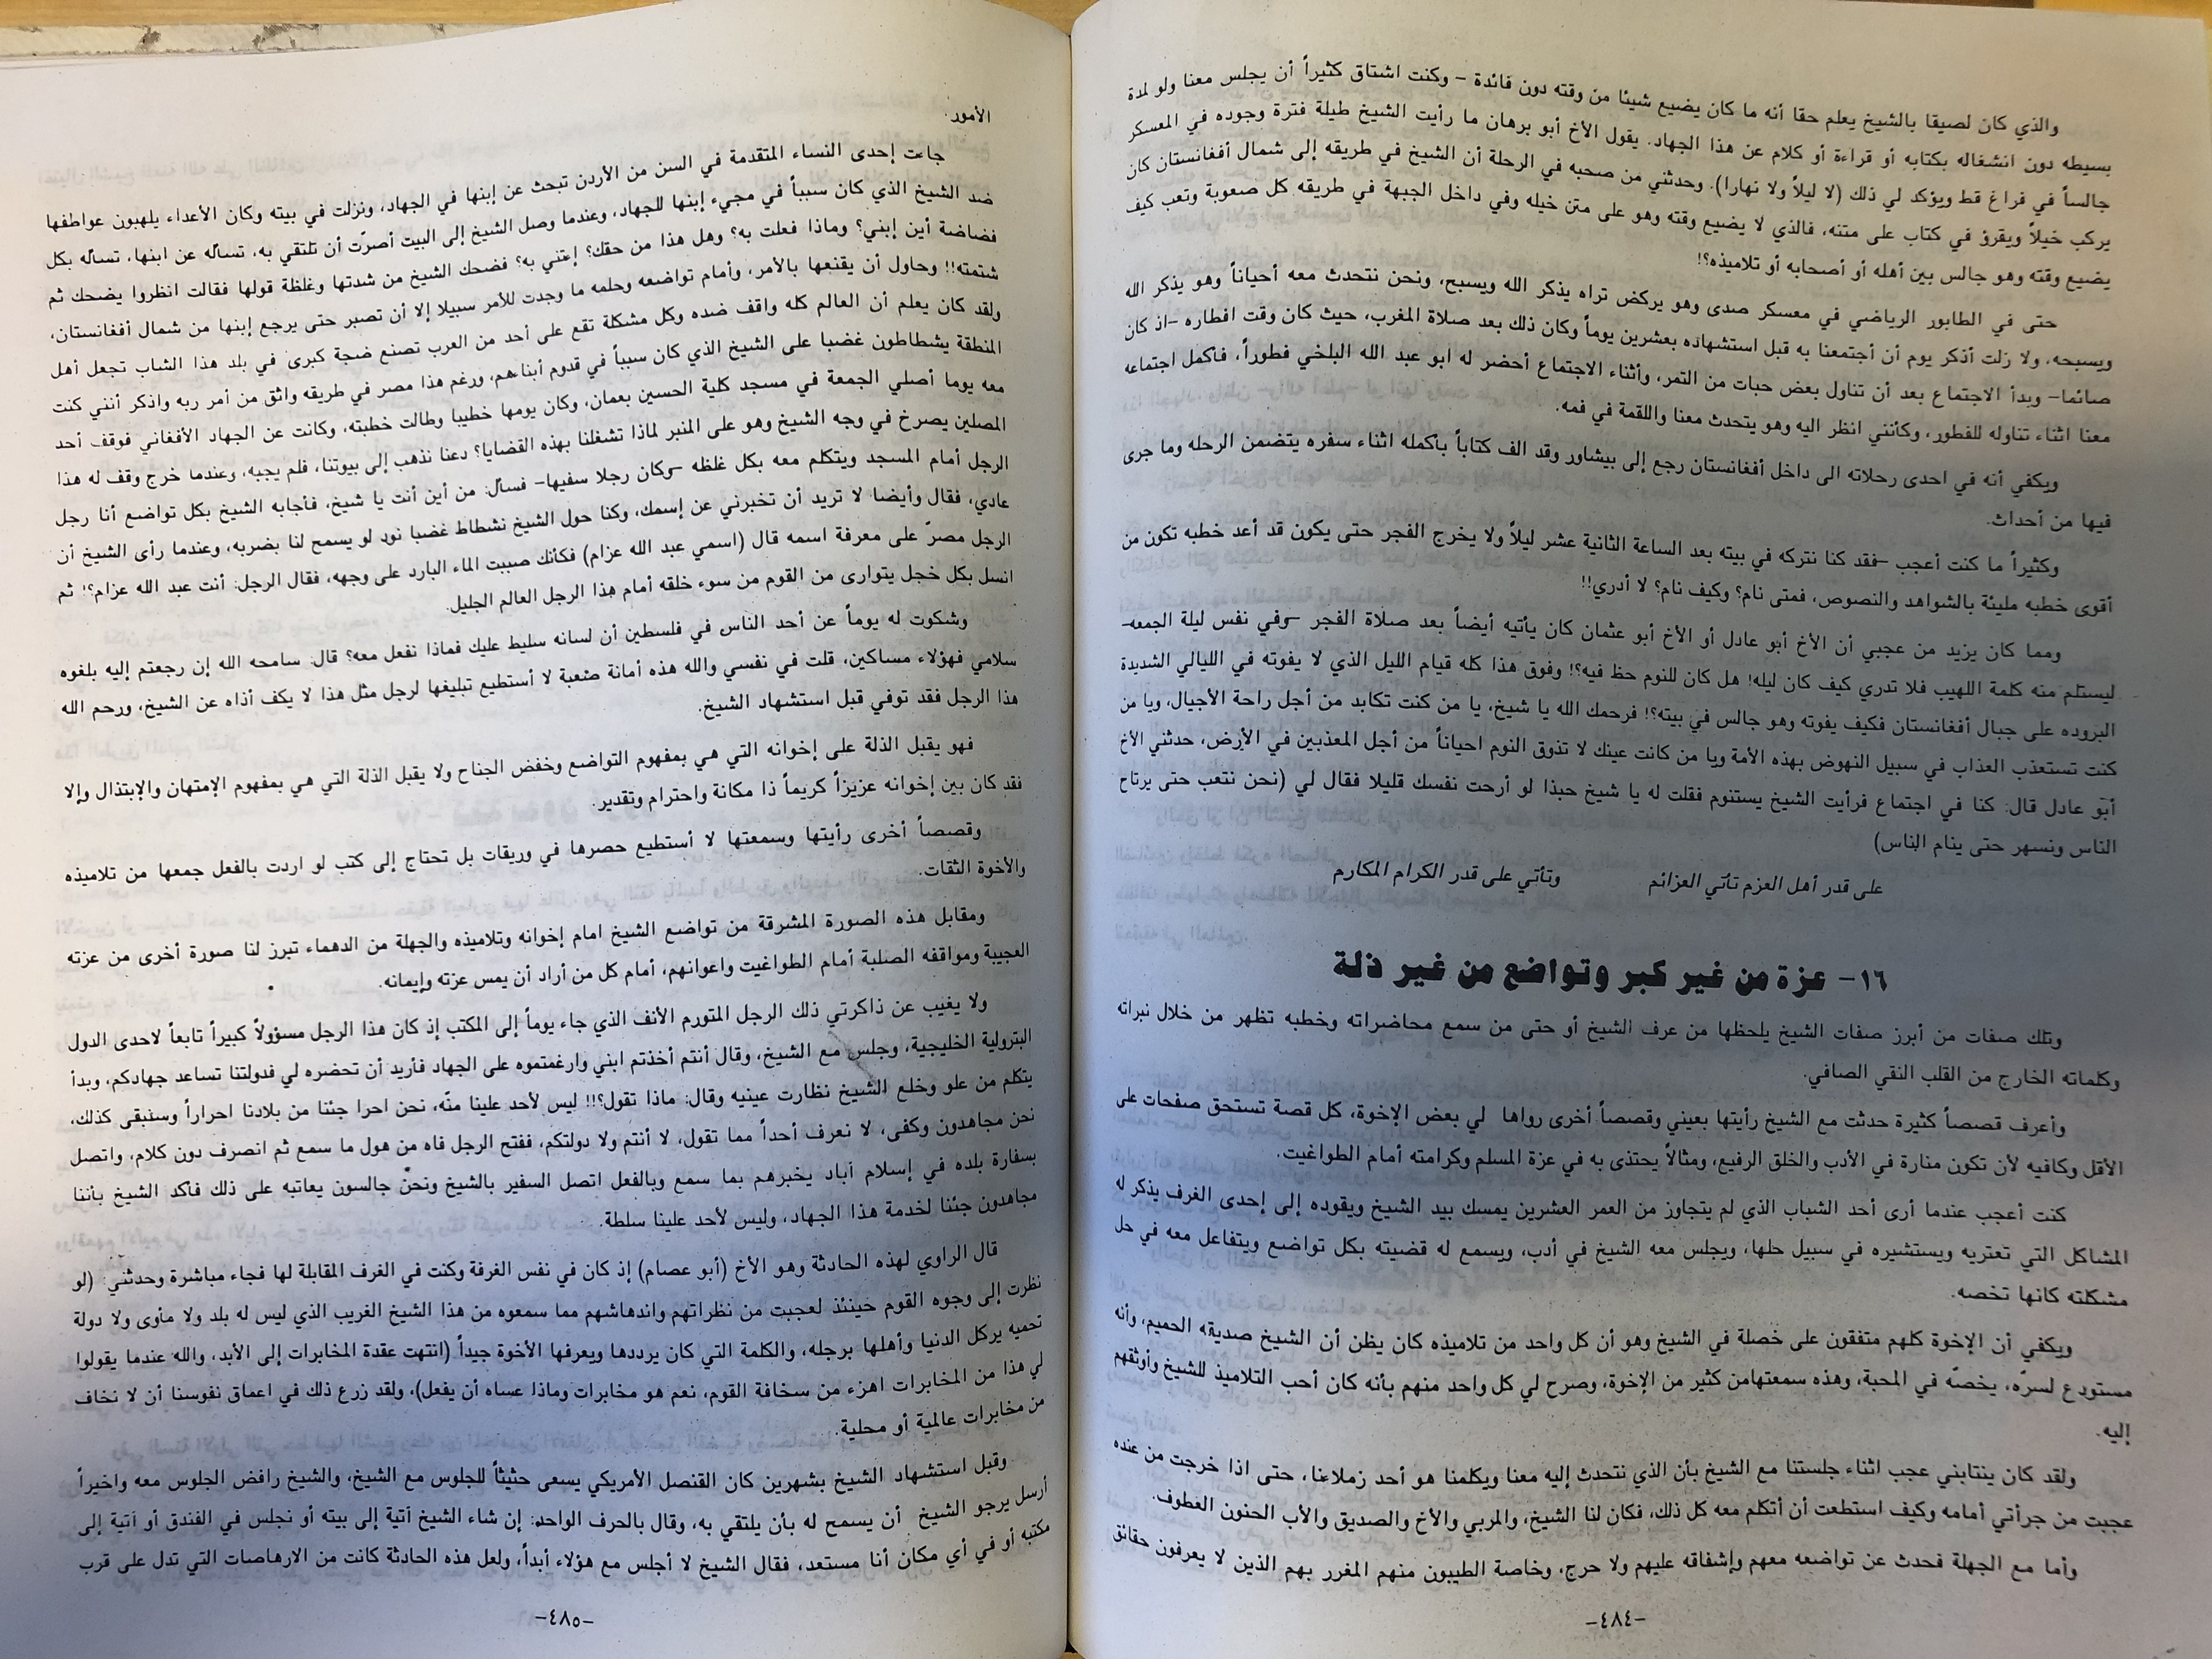 والذي كان لصيقا بالشيخ يعلم حقا أنه ما كان يضيع شيئا من وقته دون فائدة – وكنت اشتاق كثيراً أن يجلس معنا ولو لمدة
بسيطه دون انشغاله بكتابه أو قراءة أو كلام عن هذا الجهاد. يقول الأخ أبو برهان ما رأيت الشيخ طيلة فترة وجوده في المعسكر
جالساً في فراغ قط ويؤكد لي ذلك (لا ليلاً ولا نهارا). وحدثني من صحبه في الرحلة أن الشيخ في طريقه إلى شمال أفغانستان كان
يركب خيلاً ويقرؤ في كتاب على متنه، فالذي لا يضيع وقته وهو على متن خيله وفي داخل الجبهة في طريقه كل صعوبة وتعب كيف
يضيع وقته وهو جالس بين أهله أو أصحابه أو تلاميذه؟!
حتى في الطابور الرياضي في معسكر صدى وهو يركض تراه يذكر الله ويسبح، ونحن نتحدث معه أحياناً وهو يذكر الله
ويسبحه، ولا زلت أذكر يوم أن أجتمعنا به قبل استشهاده بعشرين يوماً وكان ذلك بعد صلاة المغرب، حيث كان وقت افطاره –اذ كان
صائما– وبدأ الاجتماع بعد أن تناول بعض حبات من التمر، وأثناء الاجتماع أحضر له ابو عبد الله البلخي فطوراً، فأكمل اجتماعه
معنا اثناء تناوله للفطور، وكأنني انظر اليه وهو يتحدث معنا واللقمة في فمه.
ويكفي أنه في احدى رحلاته الى داخل أفغانستان رجع إلى بيشاور وقد الف كتاباً بأكمله اثناء سفره يتضمن الرحله وما جرى
فيها من أحداث.
وكثيراً ما كنت أعجب –فقد كنا نتركه في بيته بعد الساعة الثانية عشر ليلاً ولا يخرج الفجر حتى يكون قد أعد خطبه تكون من
أقوى خطبه مليئة بالشواهد والنصوص، فمتى نام؟ وكيف نام؟ لا أدري!!
ومما كان يزيد من عجبي أن الأخ أبو عادل أو الأخ أبو عثمان كان يأتيه أيضاً بعد صلاة الفجر –وفي نفس ليلة الجمعه–
ليستلم منه كلمة اللهيب فلا تدري كيف كان ليله! هل كان للنوم حظ فيه؟! وفوق هذا كله قيام الليل الذي لا يفوته في الليالي الشديدة
البروده على جبال أفغانستان فكيف يفوته وهو جالس في بيته؟! فرحمك الله يا شيخ، يا من كنت تكابد من أجل راحة الأجيال، ويا من
كنت تستعذب العذاب في سبيل النهوض بهذه الأمة ويا من كانت عينك لا تذوق النوم احياناً من أجل المعذبين في الأرض، حدثني الأخ
أبو عادل قال: كنا في اجتماع فرأيت الشيخ يستنوم فقلت له يا شيخ حبذا لو أرحت نفسك قليلا فقال لي (نحن نتعب حتى يرتاح
الناس ونسهر حتى ينام الناس)
على قدر أهل العزم تأتي العزائم وتأتي على قدر الكرام المكارم
١٦- عزة من غير كبر وتواضع من غير ذلة
وتلك صفات من أبرز صفات الشيخ يلحظها من عرف الشيخ أو حتى من سمع محاضراته وخطبه تظهر من خلال نبراته
وكلماته الخارج من القلب النقي الصافي.
وأعرف قصصاً كثيرة حدثت مع الشيخ رأيتها بعيني وقصصاً أخرى رواها لي بعض الإخوة، كل قصة تستحق صفحات على
الأقل وكافيه لأن تكون منارة في الأدب والخلق الرفيع، ومثالاً يحتذى به في عزة المسلم وكرامته أمام الطواغيت.
كنت أعجب عندما أرى أحد الشباب الذي لم يتجاوز من العمر العشرين يمسك بيد الشيخ ويقوده إلى إحدى الغرف يذكر له
المشاكل التي تعتريه ويستشيره في سبيل حلها، ويجلس معه الشيخ في أدب، ويسمع له قضيته بكل تواضع ويتفاعل معه في حل
مشكلته كانها تخصه.
ويكفي أن الإخوة كلهم متفقون على خصلة في الشيخ وهو أن كل واحد من تلاميذه كان يظن أن الشيخ صديقه الحميم، وأنه
مستودع لسرّه، يخصّه في المحبة، وهذه سمعتهامن كثير من الإخوة، وصرح لي كل واحد منهم بأنه كان أحب التلاميذ للشيخ وأوثقهم
إليه.
ولقد كان ينتابني عجب اثناء جلستنا مع الشيخ بأن الذي نتحدث إليه معنا ويكلمنا هو أحد زملاءنا، حتى اذا خرجت من عنده
عجبت من جرأتي أمامه وكيف استطعت أن أتكلم معه كل ذلك، فكان لنا الشيخ، والمربي والأخ والصديق والأب الحنون العطوف.
وأما مع الجهلة فحدث عن تواضعه معهم وإشفاقه عليهم ولا حرج، وخاصة الطيبون منهم المغرر بهم الذين لا يعرفون حقائق
-٤٨٤-
الأمور.
جاءت إحدى النساء المتقدمة في السن من الأردن تبحث عن إبنها في الجهاد، ونزلت في بيته وكان الأعداء يلهبون عواطفها
ضد الشيخ الذي كان سبباً في مجيء إبنها للجهاد، وعندما وصل الشيخ إلى البيت أصرّت أن تلتقي به، تسأله عن ابنها، تسأله بكل
فضاضة أين إبني؟ وماذا فعلت به؟ وهل هذا من حقك؟ إءتني به؟ فضحك الشيخ من شدتها وغلظة قولها فقالت انظروا يضحك ثم
شتمته!! وحاول أن يقنعها بالأمر، وأمام تواضعه وحلمه ما وجدت للأمر سبيلا إلا أن تصبر حتى يرجع إبنها من شمال أفغانستان،
ولقد كان يعلم أن العالم كله واقف ضده وكل مشكلة تقع على أحد من العرب تصنع ضجة كبرى في بلد هذا الشاب تجعل أهل
المنطقة يشطاطون غضبا على الشيخ الذي كان سبباً في قدوم أبناءهم، ورغم هذا مصر في طريقه واثق من أمر ربه واذكر أنني كنت
معه يوما أصلي الجمعة في مسجد كلية الحسين بعمان، وكان يومها خطيبا وطالت خطبته، وكانت عن الجهاد الأفغاني فوقف أحد
المصلين يصرخ في وجه الشيخ وهو على المنبر لماذا تشغلنا بهذه القضايا؟ دعنا نذهب إلى بيوتنا، فلم يجبه، وعندما خرج وقف له هذا
الرجل أمام المسجد ويتكلم معه بكل غلظه –وكان رجلا سفيها– فسأل: من أين أنت يا شيخ، فأجابه الشيخ بكل تواضع أنا رجل
عادي، فقال وأيضا لا تريد أن تخبرني عن إسمك، وكنا حول الشيخ نشطاط غضبا نود لو يسمح لنا بضربه، وعندما رأى الشيخ أن
الرجل مصرّ على معرفة اسمه قال (اسمي عبد الله عزام) فكأنك صببت الماء البارد على وجهه، فقال الرجل: أنت عبد الله عزام؟! ثم
انسل بكل خجل يتوارى من القوم من سوء خلقه أمام هذا الرجل العالم الجليل.
وشكوت له يوماً عن أحد الناس في فلسطين أن لسانه سليط عليك فماذا نفعل معه؟ قال: سامحه الله إن رجعتم إليه بلغوه
سلامي فهؤلاء مساكين، قلت في نفسي والله هذه أمانة صعبة لا أستطيع تبليغها لرجل مثل هذا لا يكف أذاه عن الشيخ، ورحم الله
هذا الرجل فقد توفي قبل استشهاد الشيخ.
فهو يقبل الذلة على إخوانه التي هي بمفهوم التواضع وخفض الجناح ولا يقبل الذلة التي هي بمفهوم الإمتهان والإبتذال وإلا
فقد كان بين إخوانه عزيزاً كريماً ذا مكانة واحترام وتقدير.
وقصصاً أخرى رأيتها وسمعتها لا أستطيع حصرها في وريقات بل تحتاج إلى كتب لو اردت بالفعل جمعها من تلاميذه
والأخوة الثقات.
ومقابل هذه الصورة المشرقة من تواضع الشيخ امام إخوانه وتلاميذه والجهلة من الدهماء تبرز لنا صورة أخرى من عزته
العجيبة ومواقفه الصلبة أمام الطواغيت واعوانهم، أمام كل من أراد أن يمس عزته وإيمانه.
ولا يغيب عن ذاكرتي ذلك الرجل المتورم الأنف الذي جاء يوماً إلى المكتب إذ كان هذا الرجل مسؤولاً كبيراً تابعاً لاحدى الدول
البترولية الخليجية، وجلس مع الشيخ، وقال أنتم أخذتم ابني وارغمتموه على الجهاد فأريد أن تحضره لي فدولتنا تساعد جهادكم، وبدأ
يتكلم من علو وخلع الشيخ نظارت عينيه وقال: ماذا تقول؟!! ليس لأحد علينا منّه، نحن احرا جئنا من بلادنا احراراً وسنبقى كذلك،
نحن مجاهدون وكفى، لا نعرف أحداً مما تقول، لا أنتم ولا دولتكم، ففتح الرجل فاه من هول ما سمع ثم انصرف دون كلام، واتصل
بسفارة بلده في إسلام آباد يخبرهم بما سمع وبالفعل اتصل السفير بالشيخ ونحن جالسون يعاتبه على ذلك فأكد الشيخ بأننا
مجاهدون جئنا لخدمة هذا الجهاد، وليس لأحد علينا سلطة.
قال الراوي لهذه الحادثة وهو الأخ (أبو عصام) إذ كان في نفس الغرفة وكنت في الغرف المقابلة لها فجاء مباشرة وحدثني: (لو
نظرت إلى وجوه القوم حينئذ لعجبت من نظراتهم واندهاشهم مما سمعوه من هذا الشيخ الغريب الذي ليس له بلد ولا مأوى ولا دولة
تحميه يركل الدنيا وأهلها برجله، والكلمة التي كان يرددها ويعرفها الأخوة جيداً (انتهت عقدة المخابرات إلى الأبد، والله عندما يقولوا
لي هذا من المخابرات اهزء من سخافة القوم، نعم هو مخابرات وماذا عساه أن يفعل)، ولقد زرع ذلك في اعماق نفوسنا أن لا نخاف
من مخابرات عالمية أو محلية.
وقبل استشهاد الشيخ بشهرين كان القنصل الأمريكي يسعى حثيثاً للجلوس مع الشيخ، والشيخ رافض الجلوس معه واخيراً
أرسل يرجو الشيخ أن يسمح له بأن يلتقي به، وقال بالحرف الواحد: إن شاء الشيخ آتية إلى بيته أو نجلس في الفندق أو آتية إلى
مكتبه أو في أي مكان أنا مستعد، فقال الشيخ لا أجلس مع هؤلاء أبداً، ولعل هذه الحادثة كانت من الارهاصات التي تدل على قرب
-٤٨٥-